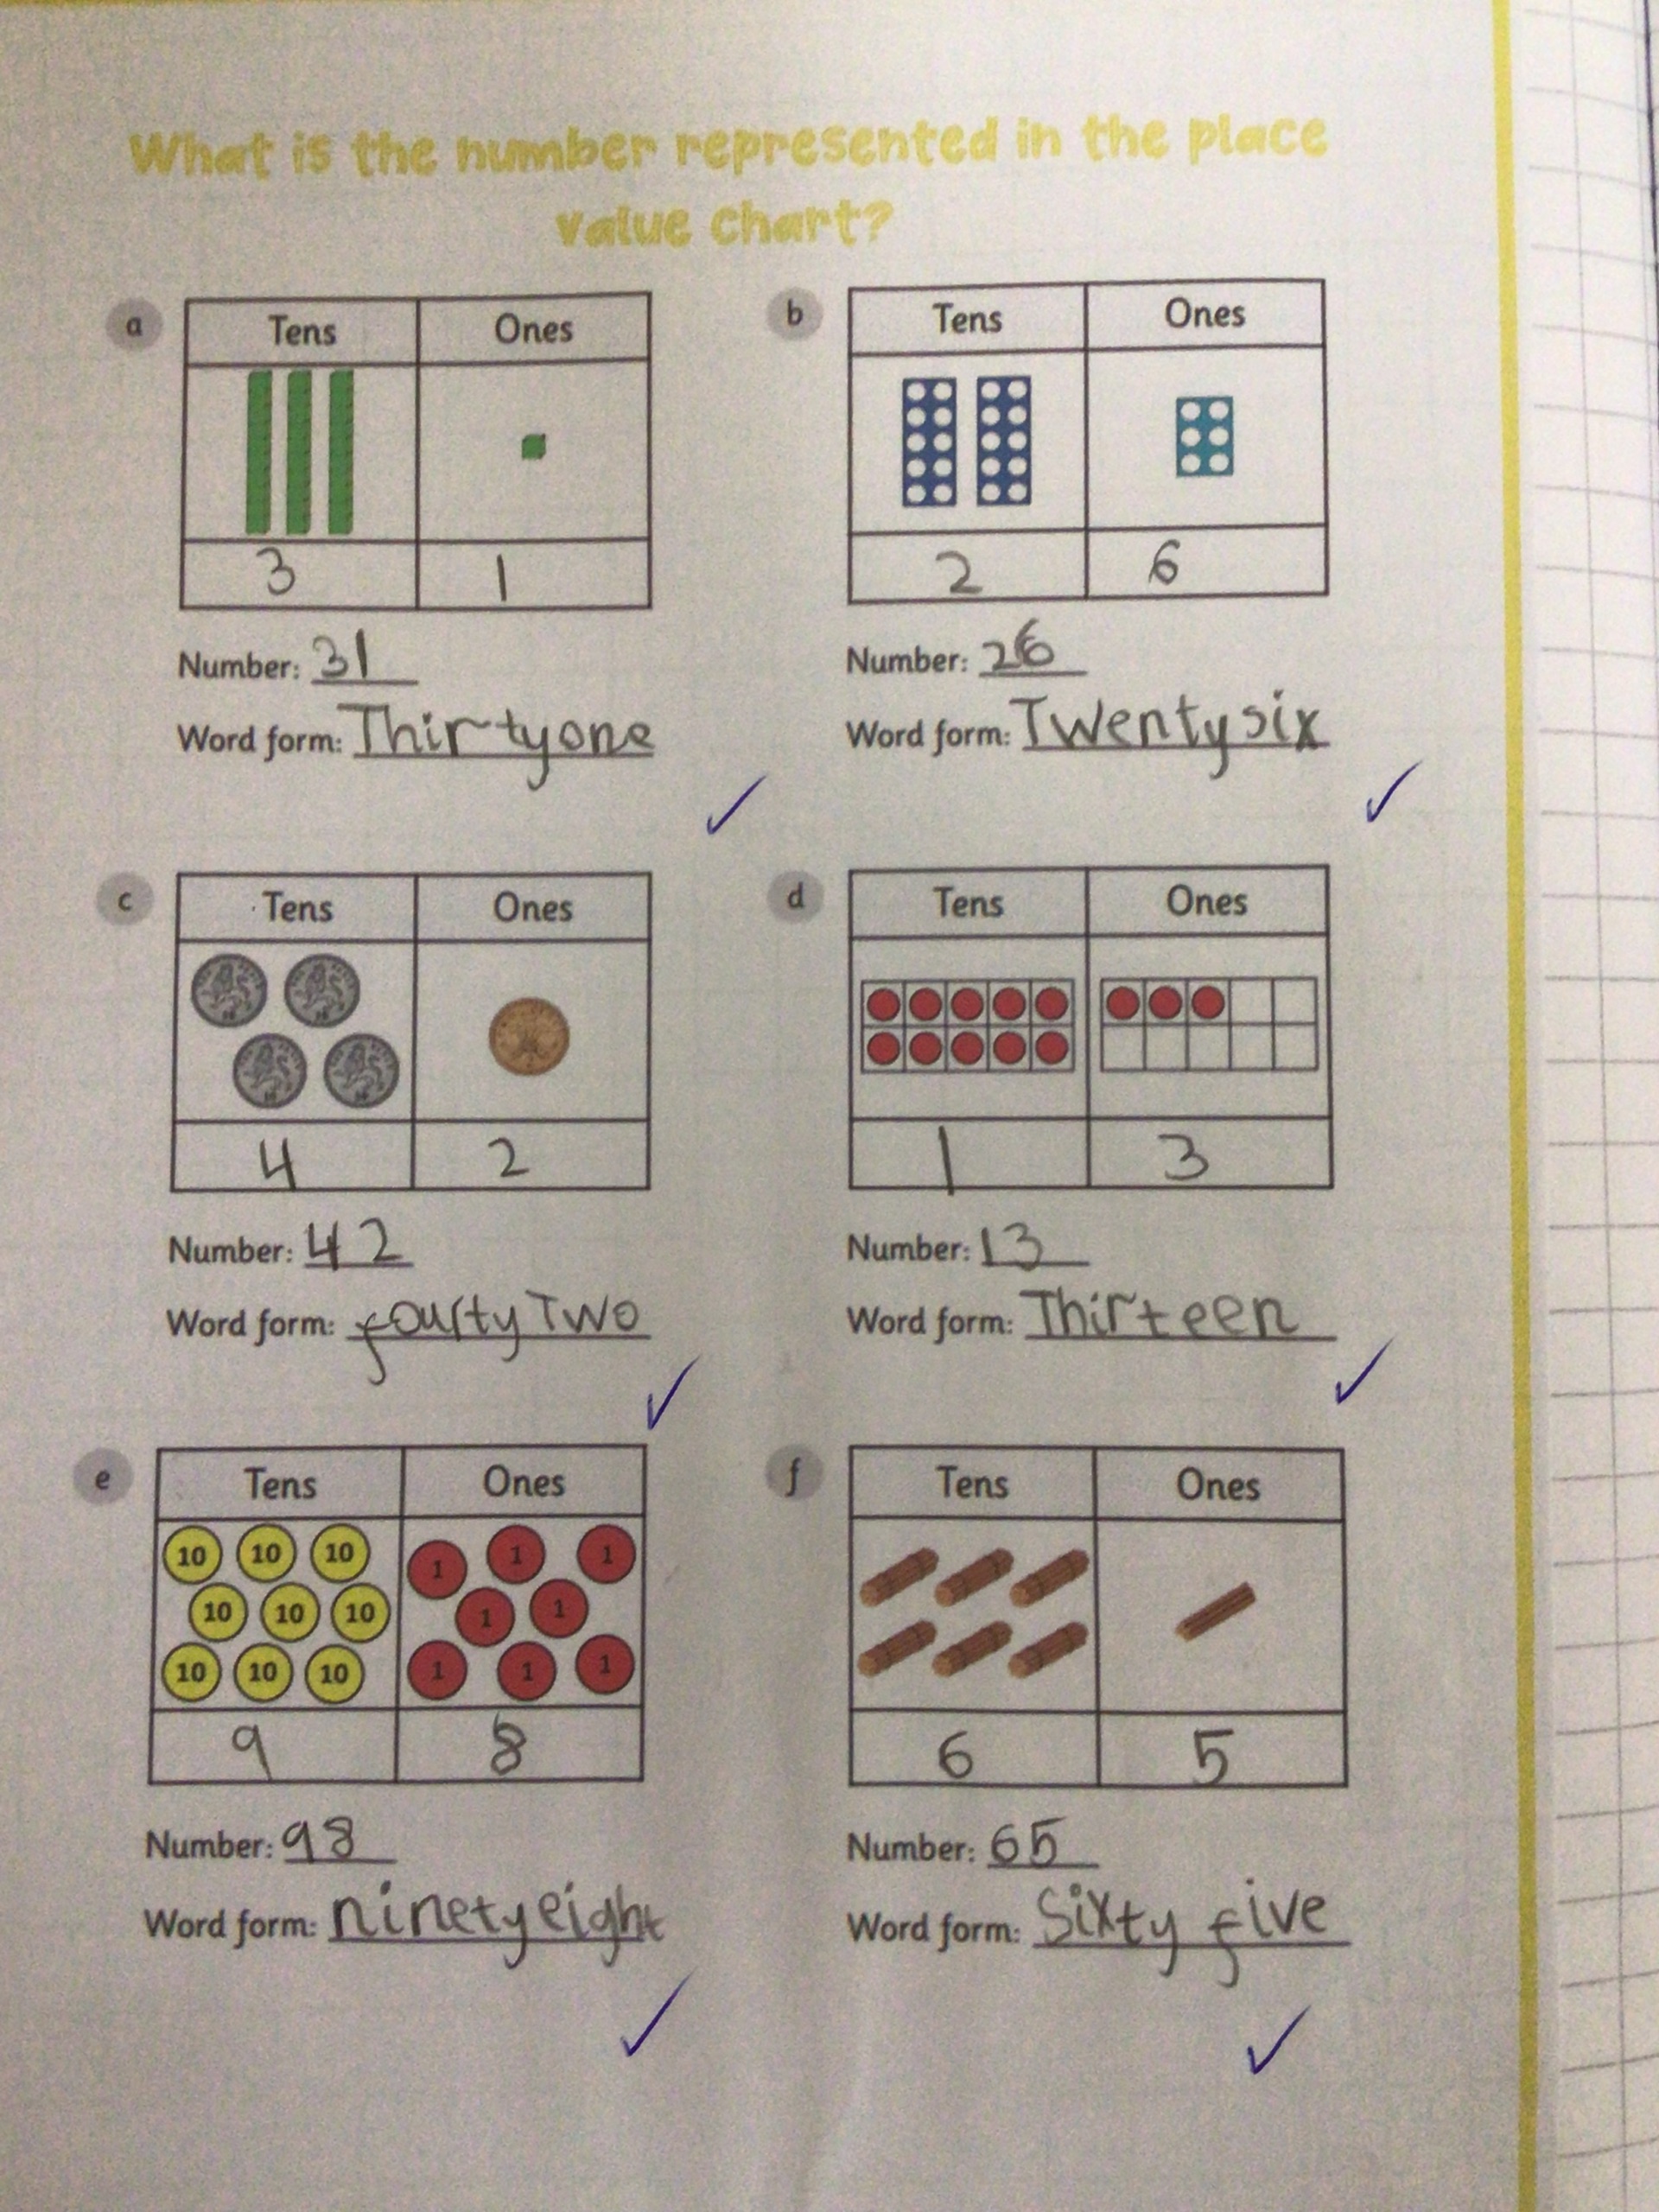 What is the number represented in the place
value chart?
a
Tens Ones
3 1
Number: 31
Word form: Thirtyone
b
Tens Ones
2 6
Number: 26
Word form: Twentysix
c
Tens Ones
4 2
Number: 42
Word form: fourty Two
d
Tens Ones
1 3
Number: 13
Word form: Thirteen
e
Tens Ones
10 10 10 1 1 1
10 10 10 1 1
10 10 10 1 1 1
9 8
Number: 98
Word form: ninetyeight
f
Tens Ones
6 5
Number: 65
Word form: Sixty five